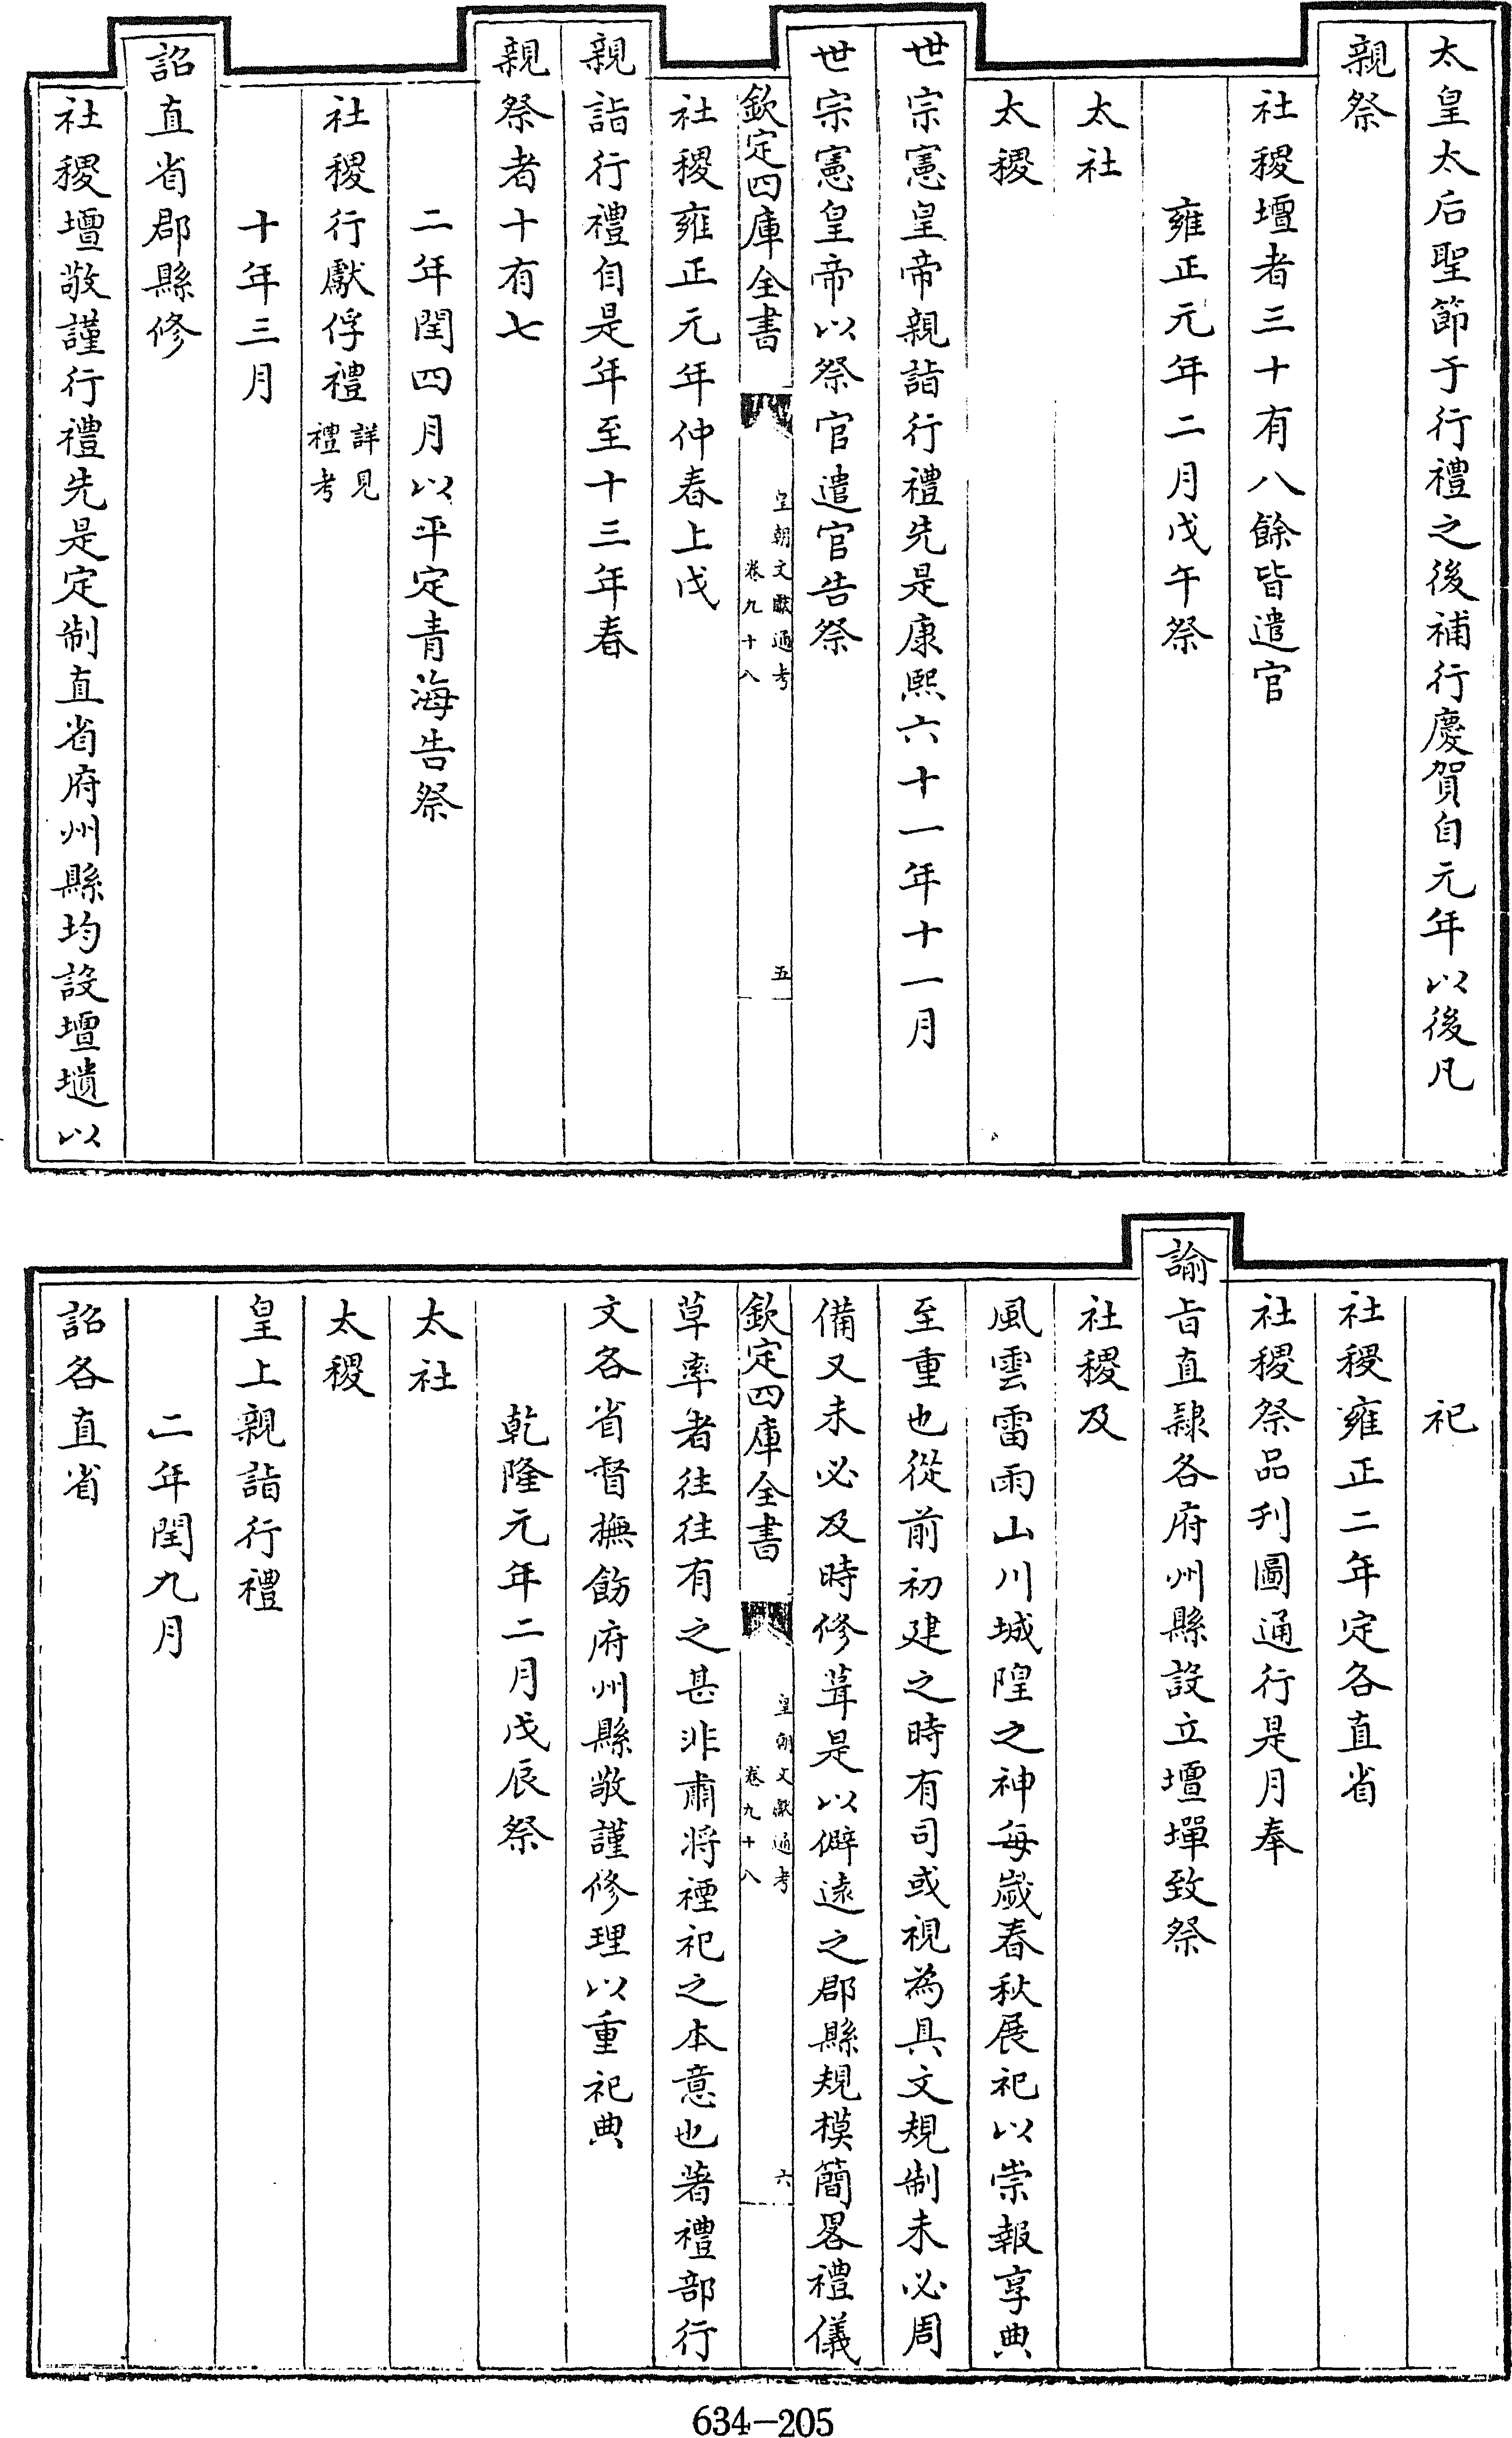 太皇太后聖節于行禮之後補行慶賀自元年以後凡
親祭
社稷壇者三十有八餘皆遣官
雍正元年二月戊午祭
太社
太稷
世宗憲皇帝親詣行禮先是康熙六十一年十一月
世宗憲皇帝以祭官遣官告祭
欽定四庫全書
皇朝文獻通考
卷九十八
五
社稷雍正元年仲春上戊
親詣行禮自是年至十三年春
親祭者十有七
二年閏四月以平定青海告祭
社稷行獻俘禮詳見禮考
十年三月
詔直省郡縣修
社稷壇敬謹行禮先是定制直省府州縣均設壇壝以
祀
社稷雍正二年定各直省
社稷祭品刋圖通行是月奉
諭旨直隸各府州縣設立壇墠致祭
社稷及
風雲雷雨山川城隍之神每嵗春秋展祀以崇報享典
至重也從前初建之時有司或視為具文規制未必周
備又未必及時修葺是以僻遠之郡縣規模簡畧禮儀
欽定四庫全書
皇朝文獻通考
卷九十八
六
草率者往往有之甚非肅將禋祀之本意也著禮部行
文各省督撫飭府州縣敬謹修理以重祀典
乾隆元年二月戊辰祭
太社
太稷
皇上親詣行禮
二年閏九月
詔各直省
634-205